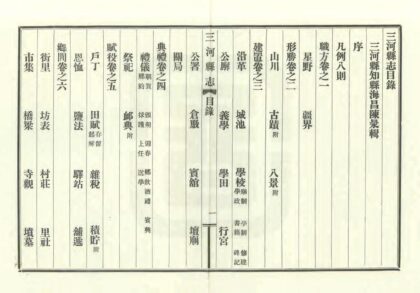 三河縣志目錄
三河縣知縣海昌陳㫤輯
序
凡例八則
職方卷之一
星野 疆界
形勝卷之二
山川 古蹟附 八景附
建置卷之三
沿革 城池 學校廟制 學制 修建 學政 書籍 碑記
公廨 義學 學田 行宮
三河縣志 目錄 一
公署 倉廒 賓館 壇廟
關局
典禮卷之四
禮儀朝賀 頒朔 迎春 鄉飲酒禮 賓興 鄉約 救護 上任 送學
祭祀 卹典附
賦役卷之五
戶丁 田賦存留 起解 雜稅 積貯附
恩恤 鹽法 驛站 舖遞
鄉閭卷之六
街里 坊表 村莊 里社
市集 橋梁 寺觀 墳墓